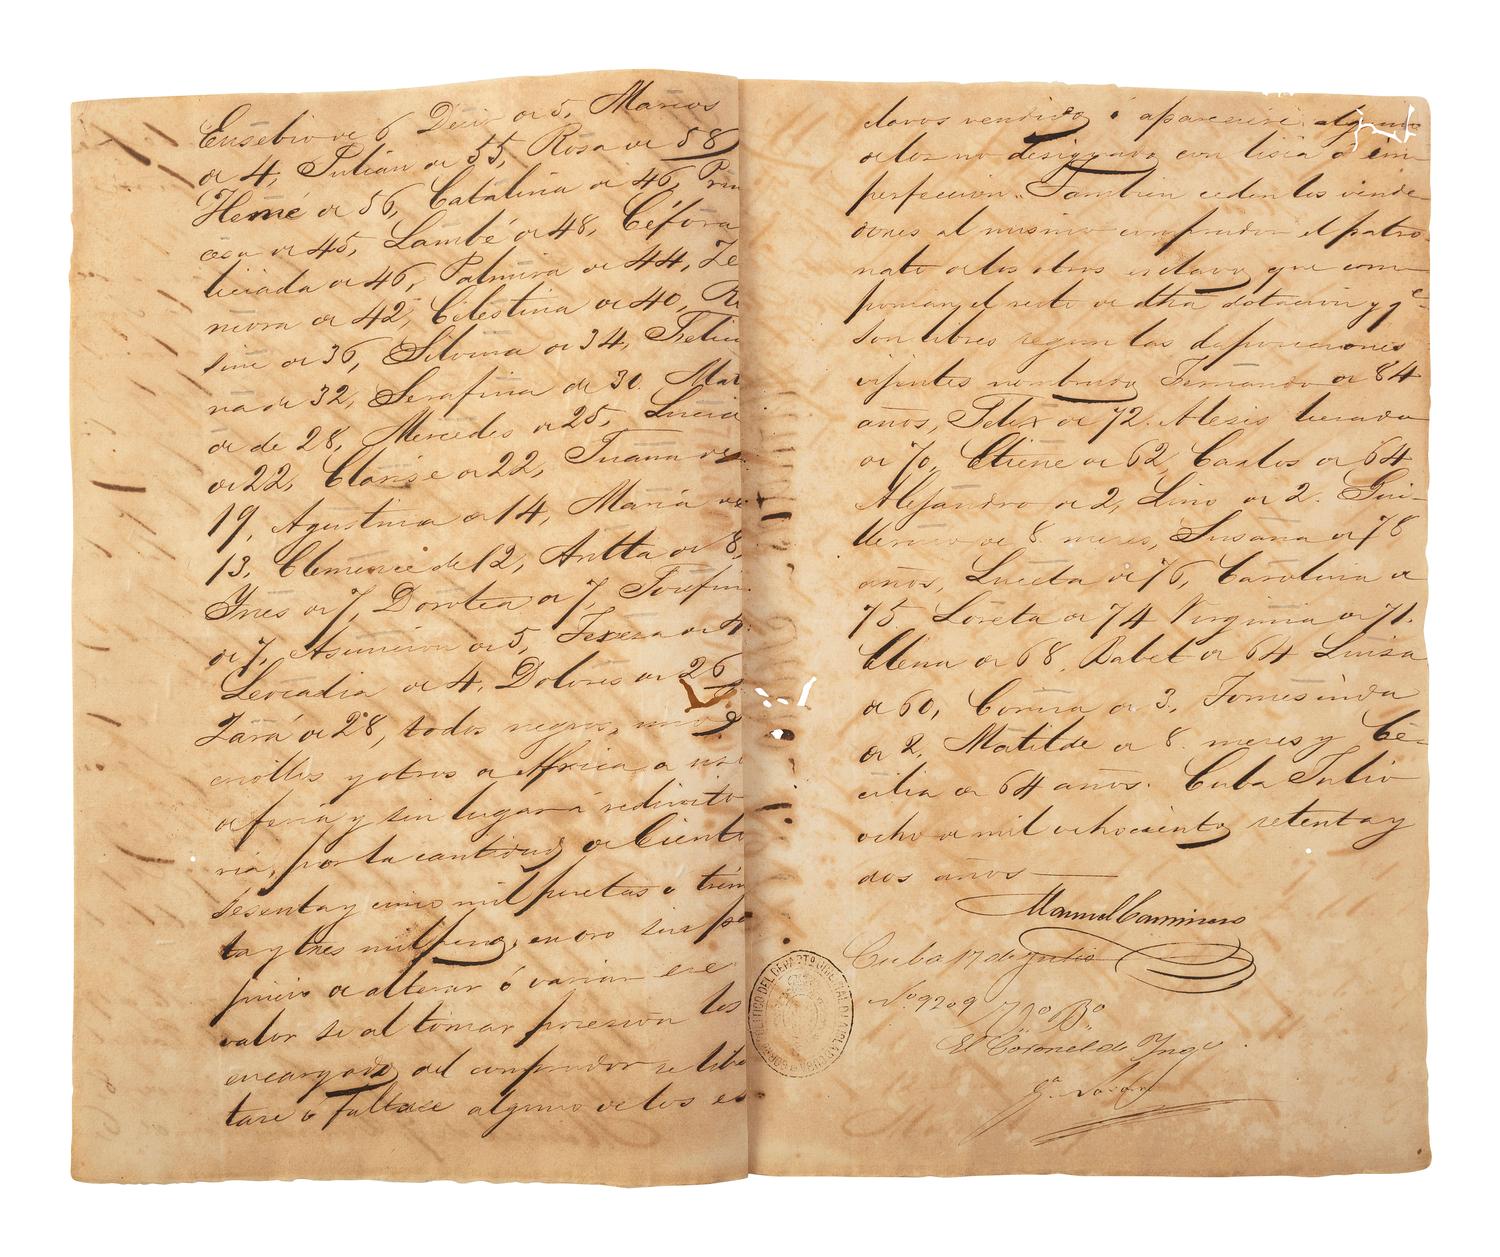 Eusebio de 6 Decir de 5, Marcos
de 4, Julian de 55, Rosa de 58
Heme de 56, Catalina de 46, Prin
cesa de 45, Lambé de 48, Céfora
liciada de 46, Palmira de 44, Ze
nora de 42, Celestina de 40, Ro
sine de 36, Silvina de 34, Felici
na de 32, Serafina de 30. Mat
de de 28, Mercedes de 25, Lucia
de 22, Clarise de 22, Juana de
19, Agustina de 14, Maria de
13, Clemence de 12, Anita de 8,
Ynes de 7, Dorotea de 7, Josefin
de 7, Asuncion de 5, Teresa de 4.
Leocadia de 4, Dolores de 26
Zará de 28, todos negros, unos
criollos y otros de Africa a uso
de feria y sin lugar á redivito
ria, por la cantidad de Ciento
sesenta y cinco mil pesetas ó trein
ta y tres mil pesos, en oro sin per
juicio de alterar ó variar ese
valor si al tomar posesion los
encargados del comprador se liber
tare ó faltase alguno de los es
clavos vendidos ó apareciere alguno
de los no designado con tisia ó im
perfeccion. Tambien ceden los vende
dores al mismo comprador el patro
nato de los otros esclavos que com
ponian el resto de dha dotacion y qe
son libres segun las disposiciones
vijentes nombrados Fernando de 84
años, Felix de 72. Alexis
de 70, Etiene de 62, Carlos de 64
Alejandro de 2, Lino de 2. Gui-
llermo de 8 meses, Susana de 78
años, Luceta de 76, Carolina de
75. Loreta de 74 Virginia de 71.
Elena de 68, Babet de 64 Luisa
de 60, Corina de 3, Tomesinda
de 2, Matilde de 8 meses y Ce-
cilia de 64 años. Cuba Julio
ocho de mil ochocientos setenta y
dos años
Manuel Caminero
Cuba 17 de Julio
No 9209 Vo Bo
El Coronel de Ynge
GOBNO POLITICO DEL DEPARTO ORIENTAL DE LA ISLA DE CUBA